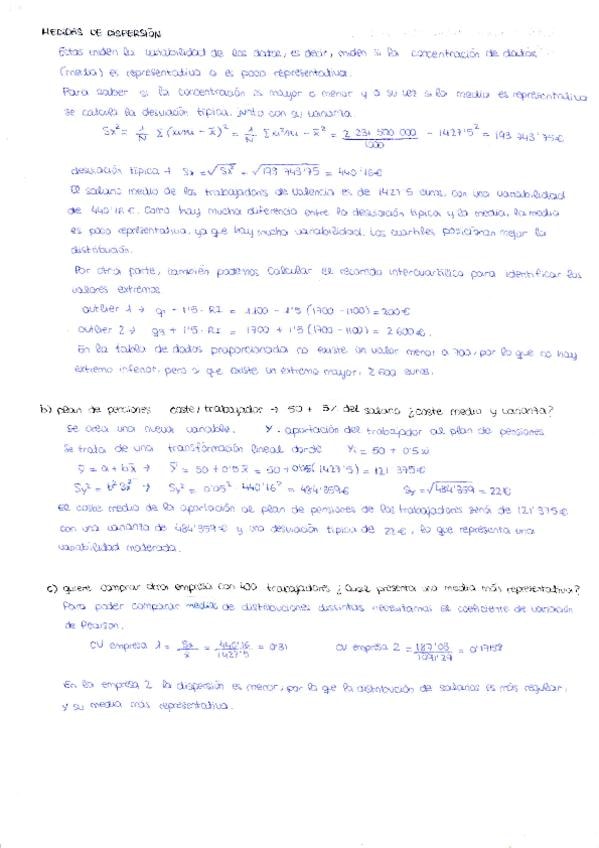 MEDIDAS DE DISPERSIÓN
Estas miden la variabilidad de los datos, es decir, miden si la concentración de datos
(media) es representativa o es poco representativa.
Para saber si la concentración es mayor o menor y a su vez si la media es representativa
se calcula la desviación típica, junto con su varianza.
Sx² = 1/N Σ (xi·ni - x̄)² = 1/N Σ xi²·ni - x̄² = 2 231 500 000 / 1000 - 1427'5² = 193 743'75 €
desviación típica → Sx = √Sx² = √193 743'75 = 440'16 €
El salario medio de los trabajadores de Valencia es de 1427'5 euros, con una variabilidad
de 440'16 €. Como hay mucha diferencia entre la desviación típica y la media, la media
es poco representativa, ya que hay mucha variabilidad. Los cuartiles posicionan mejor la
distribución.
Por otra parte, también podemos calcular el recorrido intercuartílico para identificar los
valores extremos.
outlier 1 → q1 - 1'5 · RI = 1100 - 1'5 (1700 - 1100) = 200 €
outlier 2 → q3 + 1'5 · RI = 1700 + 1'5 (1700 - 1100) = 2 600 €.
En la tabla de datos proporcionada no existe un valor menor a 200, por lo que no hay
extremo inferior, pero si que existe un extremo mayor, 2 600 euros.
b) plan de pensiones coste/trabajador → 50 + 5% del salario ¿coste medio y varianza?
Se crea una nueva variable. Y = aportación del trabajador al plan de pensiones
Se trata de una transformación lineal donde Yi = 50 + 0'5 xi
ȳ = a + b x̄ → ȳ = 50 + 0'5 x̄ = 50 + 0'05 (1427'5) = 121 375 €
Sy² = b² Sx² → Sy² = 0'05² 440'16² = 484'359 € Sy = √484'359 = 22 €
El coste medio de la aportación al plan de pensiones de los trabajadores será de 121'375 €
con una varianza de 484'359 € y una desviación típica de 22 €, lo que representa una
variabilidad moderada.
c) quiere comprar otra empresa con 400 trabajadores ¿Cuál presenta una media más representativa?
Para poder comparar medias de distribuciones distintas necesitamos el coeficiente de variación
de Pearson.
CV empresa 1 = Sx / x̄ = 440'16 / 1427'5 = 0'31 CV empresa 2 = 187'03 / 1091'29 = 0'1
En la empresa 2 la dispersión es menor, por lo que la distribución de salarios es más regular,
y su media más representativa.